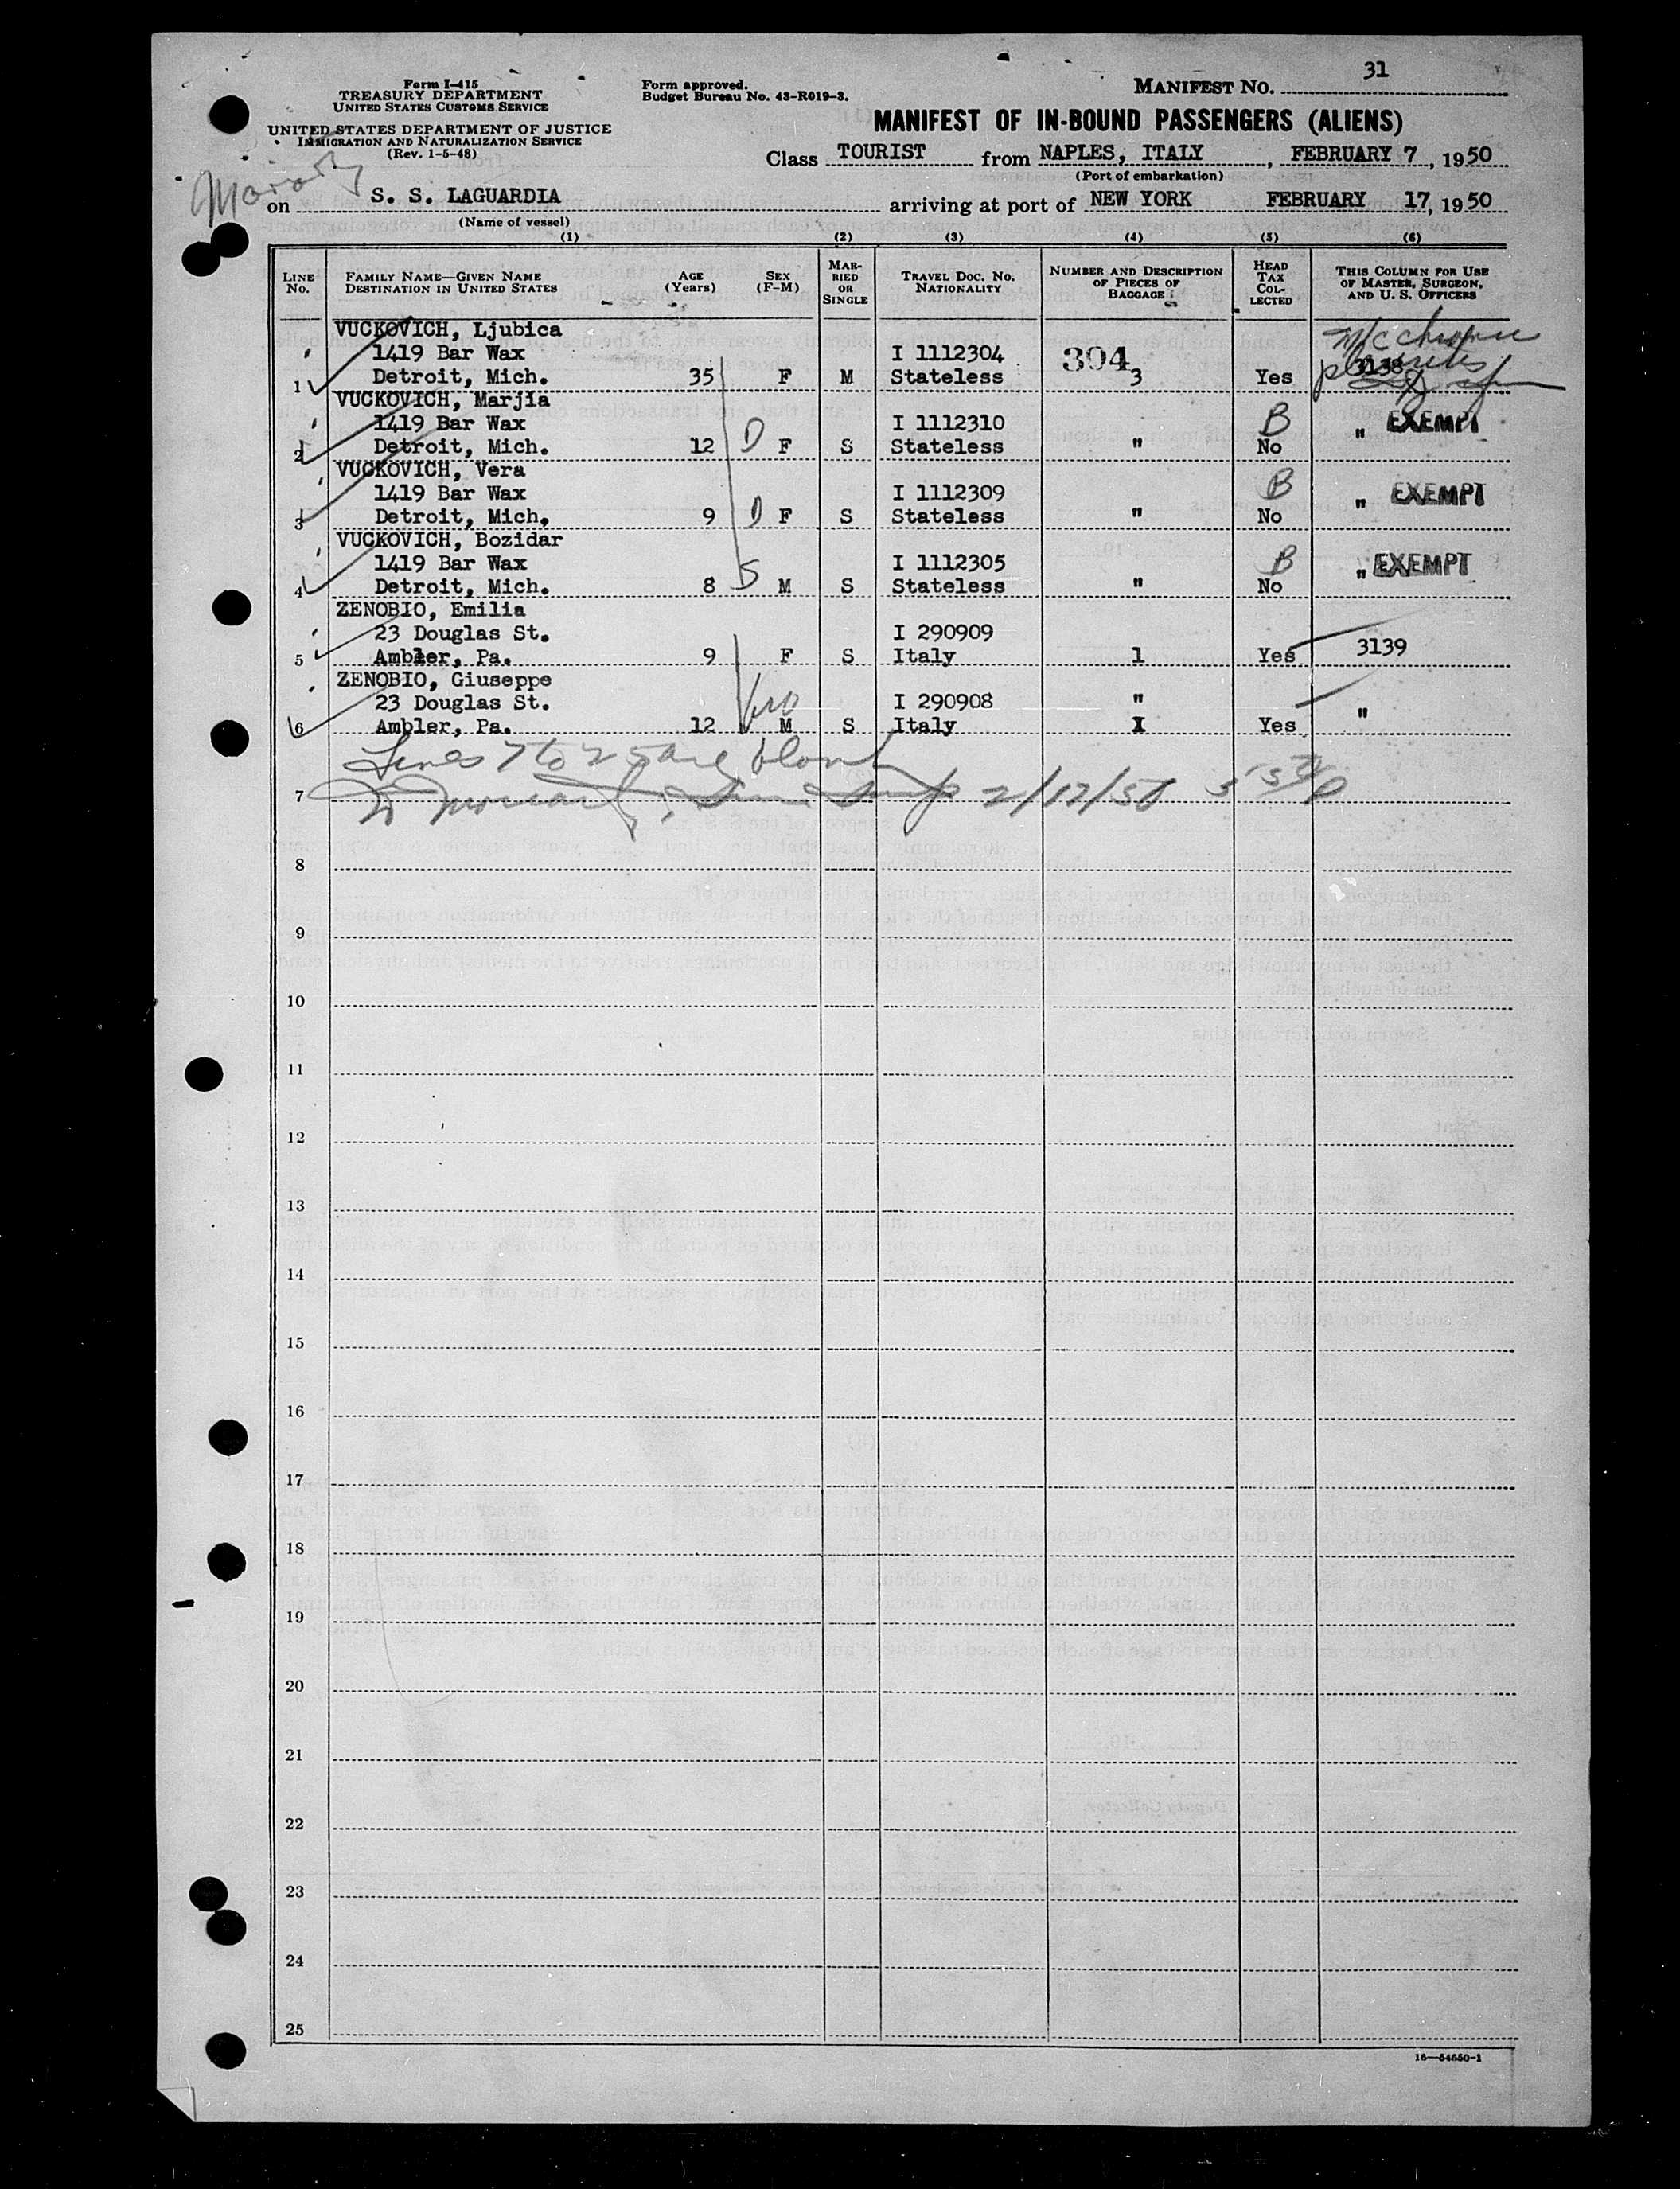 31
Form I-415
TREASURY DEPARTMENT
UNITED STATES CUSTOMS SERVICE
Form approved.
Budget Bureau No. 43-R019-3.
MANIFEST NO.
UNITED STATES DEPARTMENT OF JUSTICE
IMMIGRATION AND NATURALIZATION SERVICE
(Rev. 1-5-48)
MANIFEST OF IN-BOUND PASSENGERS (ALIENS)
Class TOURIST from NAPLES, ITALY, FEBRUARY 7, 1950
(Port of embarkation)
on S. S. LAGUARDIA arriving at port of NEW YORK FEBRUARY 17, 1950
(Name of vessel)
(1) (2) (3) (4) (5) (6)
LINE No. FAMILY NAME—GIVEN NAME DESTINATION IN UNITED STATES AGE (Years) SEX (F-M) MARRIED OR SINGLE TRAVEL DOC. NO. NATIONALITY NUMBER AND DESCRIPTION OF PIECES OF BAGGAGE HEAD TAX COLLECTED THIS COLUMN FOR USE OF MASTER, SURGEON, AND U. S. OFFICERS
VUCKOVICH, Ljubica
1419 Bar Wax I 1112304 304
1 Detroit, Mich. 35 F M Stateless 3 Yes 3138
VUCKOVICH, Marjia
1419 Bar Wax I 1112310 B EXEMPT
2 Detroit, Mich. 12 D F S Stateless " No "
VUCKOVICH, Vera
1419 Bar Wax I 1112309 B EXEMPT
3 Detroit, Mich. 9 D F S Stateless " No "
VUCKOVICH, Bozidar
1419 Bar Wax I 1112305 B EXEMPT
4 Detroit, Mich. 8 S M S Stateless " No "
ZENOBIO, Emilia
23 Douglas St. I 290909
5 Ambler, Pa. 9 F S Italy 1 Yes 3139
ZENOBIO, Giuseppe
23 Douglas St. I 290908 "
6 Ambler, Pa. 12 M S Italy 1 Yes "
Lines 7 to 25 are blank
7 2/17/50
8
9
10
11
12
13
14
15
16
17
18
19
20
21
22
23
24
25
16—54650-1